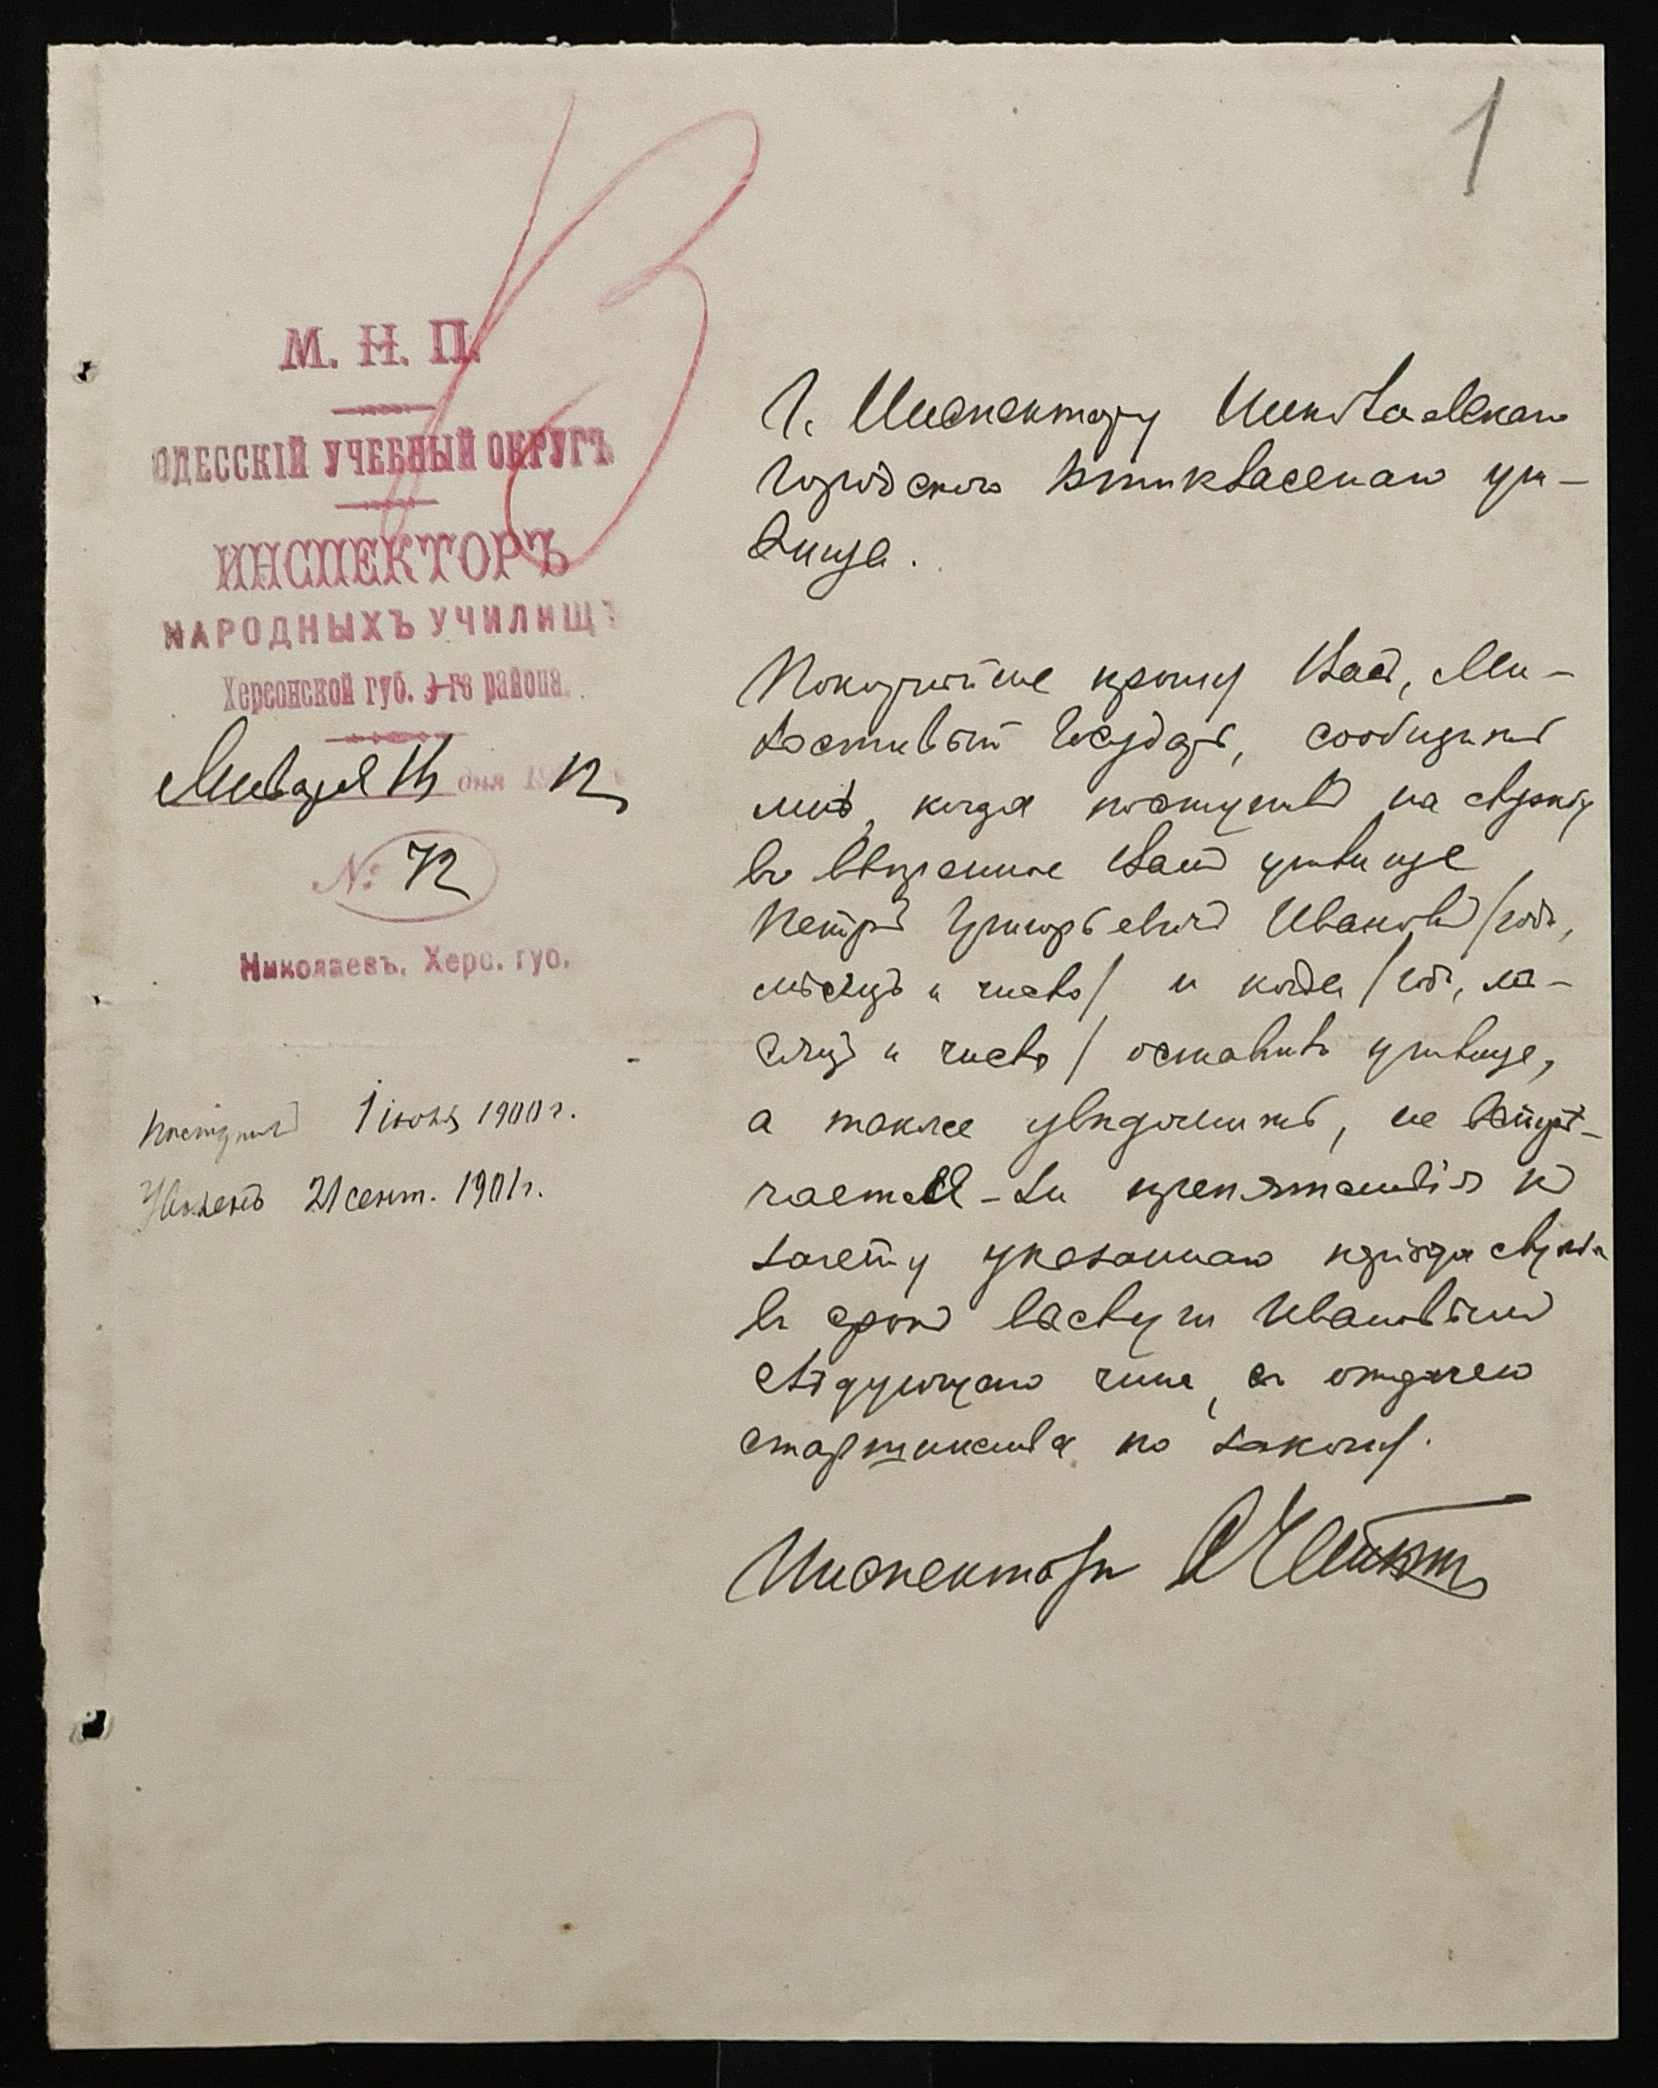 1
М. Н. П.
ОДЕССКІЙ УЧЕБНЫЙ ОКРУГЪ
ИНСПЕКТОРЪ
НАРОДНЫХЪ УЧИЛИЩЪ
Херсонской губ. 1-го района.
Января дня 19 12
№ 72
Николаевъ, Херс. губ.
Поступилъ 1 іюля 1900 г.
Уволенъ 21 сент. 1901 г.
Г. Инспектору Николаевскаго
Городского класснаго учи-
лища.
Покорнѣйше прошу Васъ, Ми-
лостивый Государь, сообщить
мнѣ, когда поступилъ на службу
во ввѣренное Вамъ училище
Петръ Григорьевичъ Ивановъ /годъ,
мѣсяцъ и число/ и когда /годъ, мѣ-
сяцъ и число/ оставилъ училище,
а также увѣдомить, не встрѣ-
чается-ли препятствія къ
зачету указаннаго періода службы
въ срокъ выслуги Ивановымъ
слѣдующаго чина, съ отдачею
старшинства по закону.
Инспекторъ